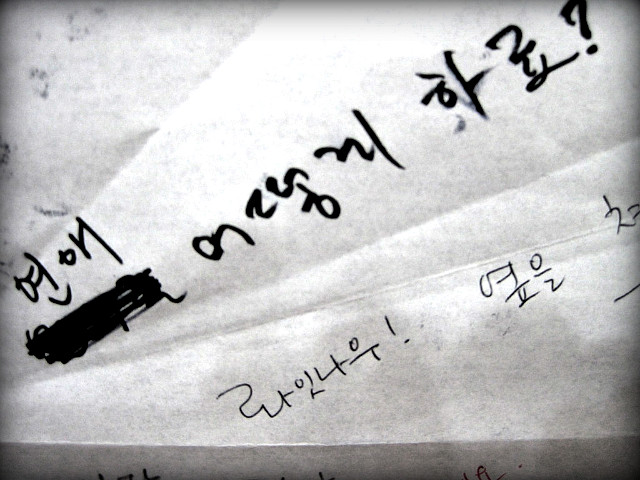 연애 어떻게 하죠?
라잇나우! 옆을